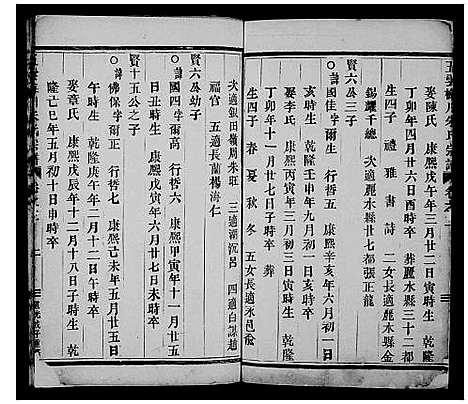 娶陳氏 康熙戊午年三月廿二日寅時生 乾隆
丁卯年四月廿六日酉時卒 葬麗水縣三十二都
生四子 禮 雅 書 詩 二女長適麗水縣金
錫耀千總 次適麗水縣廿七都張正龍
賢六公三子
諱國佳字爾生 行哲五 康熙辛亥年六月初一日
亥時生 乾隆壬申年九月初一日亥時卒
娶李氏 康熙丙寅年三月初三日寅時生 乾隆
丁卯年十一月初三日子時卒 葬
生四子 春 夏 秋 冬 五女長適永邑俞
次適銀田嶺周朱旺 三適湖沉呂 四適白謀趙
福官 五適長蘭楊海仁
賢六公幼子
諱國四字爾萵 行哲六 康熙甲寅年十一月廿五
日丑時生 康熙戊寅年六月廿七日未時卒
賢十五公之子
諱佛保字爾 行哲七 康熙己未年五月廿五日
午時生 乾隆庚午年二月十二日午時卒
娶章氏 康熙戊辰年十二月十八日子時生 乾
隆己巳年五月初十日申時卒